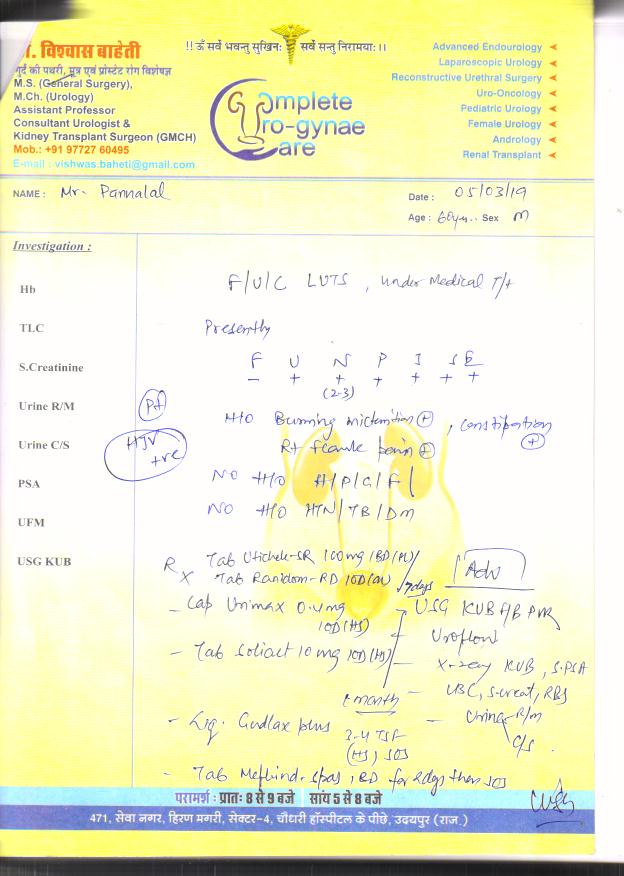 !! ॐ सर्वे भवन्तु सुखिनः सर्वे सन्तु निरामयाः ।।
. विश्वास बाहेती
गुर्दे की पथरी, मूत्र एवं प्रोस्टेट रोग विशेषज्ञ
M.S. (General Surgery),
M.Ch. (Urology)
Assistant Professor
Consultant Urologist &
Kidney Transplant Surgeon (GMCH)
Mob.: +91 97727 60495
E-mail : vishwas.baheti@gmail.com
Complete
Uro-gynae
Care
Advanced Endourology
Laparoscopic Urology
Reconstructive Urethral Surgery
Uro-Oncology
Pediatric Urology
Female Urology
Andrology
Renal Transplant
NAME : Mr. Pannalal
Date : 05/03/19
Age : 60yrs. Sex M
Investigation :
Hb
TLC
S.Creatinine
Urine R/M
Urine C/S
PSA
UFM
USG KUB
F/U/C LUTS, under Medical T/t
Presently
F U N P I S E
- + + + + + +
(2-3)
H/O Burning micturition +, constipation +
HIV +re
Rt flank pain +
NO H/O H/P/C/F/
NO H/O HTN/TB/DM
Rx Tab 100mg 1BD
Tab 1OD /7days
Adv
- Cap Urimax 0.4mg
1OD(HS)
- Tab Soliact 10mg 1OD(HS)
month
- Liq. Cudlax plus
3-4 TSF
(HS) SOS
- Tab Meftind-spas, BD for 2days then SOS
- USG KUB PVR
Uroflow
- X-ray KUB, S.PSA
- CBC, S.creat, RBS
- Urine R/m
C/S.
परामर्श : प्रातः 8 से 9 बजे सायं 5 से 8 बजे
471, सेवा नगर, हिरण मगरी, सेक्टर-4, चौधरी हॉस्पीटल के पीछे, उदयपुर (राज.)